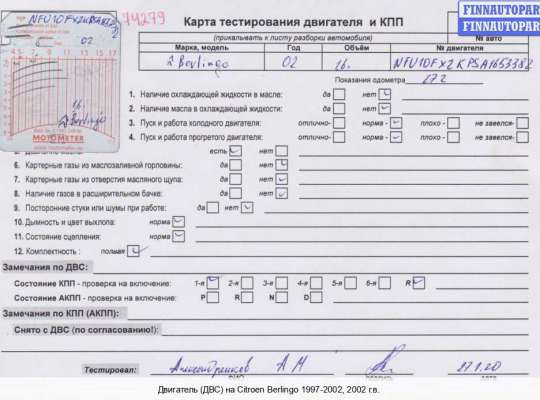 74279
FINNAUTOPAR
FINNAUTOPAR
Карта тестирования двигателя и КПП
(прикалывать к листу разборки автомобиля)
№ авто
Марка, модель Год Объём № двигателя
Berlingo 02 16. NFU10FX2KPSA1653382
Показания одометра 272
NFU10FX2KPSA
02
16.
Berlingo
MOTOMETER
1. Наличие охлаждающей жидкости в масле: да нет
2. Наличие масла в охлаждающей жидкости: да нет
3. Пуск и работа холодного двигателя: отлично- норма - плохо - не завелся-
4. Пуск и работа прогретого двигателя: отлично- норма - плохо - не завелся-
есть нет
6. Картерные газы из маслозаливной горловины: да нет
7. Картерные газы из отверстия масляного щупа: да нет
8. Наличие газов в расширительном бачке: да нет
9. Посторонние стуки или шумы при работе: да нет
10. Дымность и цвет выхлопа: норма
11. Состояние сцепления: норма
12. Комплектность : полная
Замечания по ДВС:
Состояние КПП - проверка на включение: 1-я 2-я 3-я 4-я 5-я 6-я R
Состояние АКПП - проверка на включение: P R N D
Замечания по КПП (АКПП):
Снято с ДВС (по согласованию!):
Тестировал: А М 27.1.20
Двигатель (ДВС) на Citroen Berlingo 1997-2002, 2002 г.в.